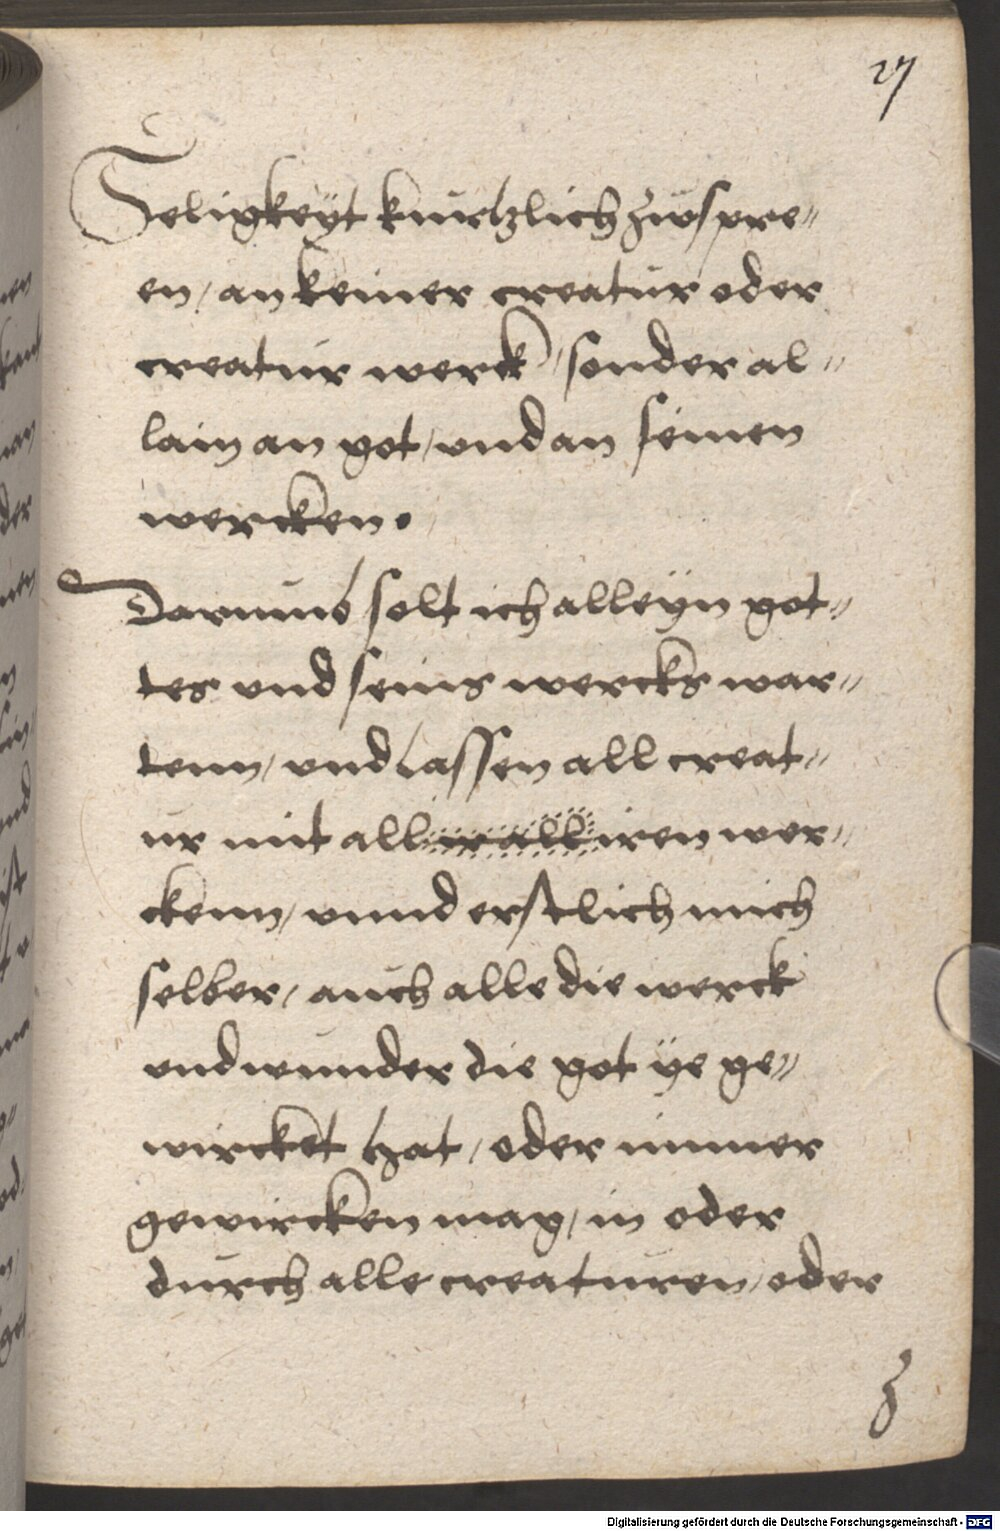 27
Seligkeyt kurtzlich zuo spre„
en / an keiner creatur oder
creatur werck / sonder al„
lain an got / und an seinen
wercken.
Darumb solt ich alleyn got„
tes und seins wercks war„
tenn / und lassen all creat„
ur mit all ir all iren wer„
ckenn / unnd erstlich mich
selber / auch alle die werck
und wunder die got ÿe ge„
wircket hat / oder immer
gewircken mag / in oder
durch alle creaturen / oder
Digitalisierung gefördert durch die Deutsche Forschungsgemeinschaft - DFG